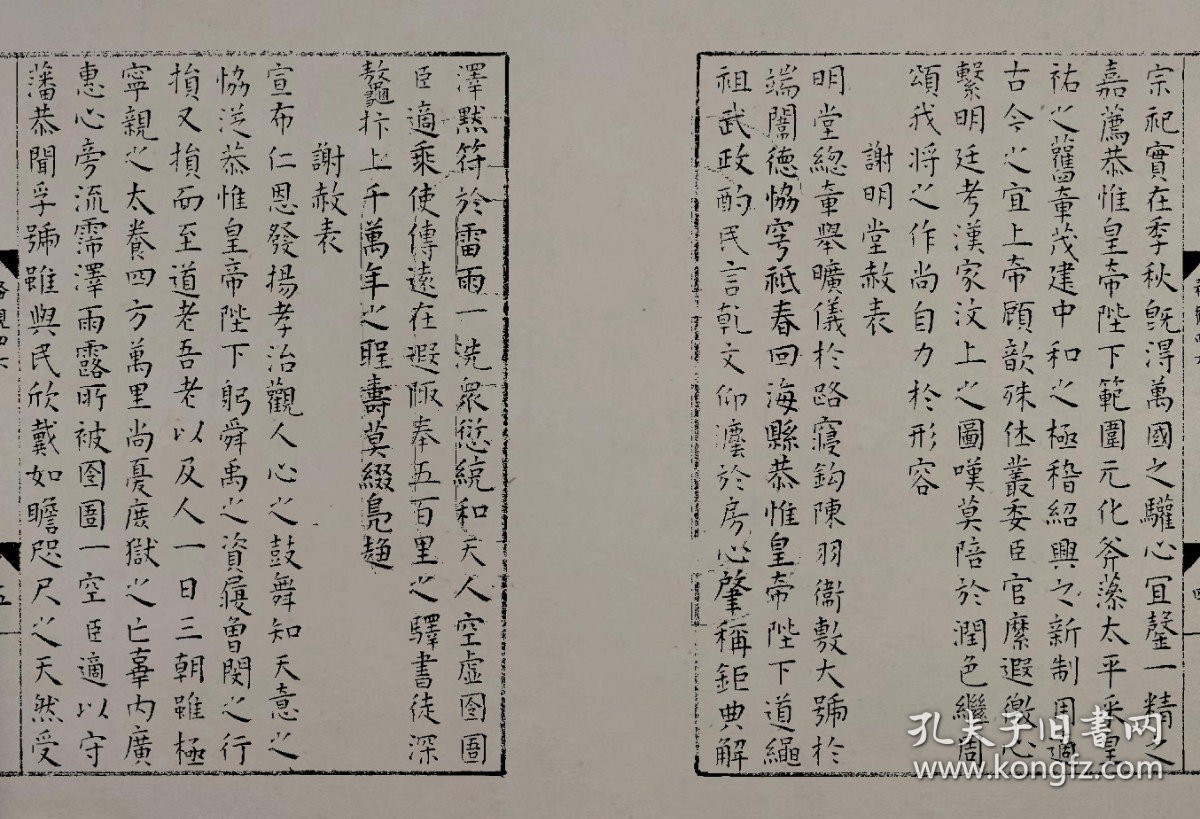 宗祀實在季秋旣得萬國之驩心冝罄一精之
嘉薦恭惟皇帝陛下範圍元化斧藻太平采皇
祐之舊章茂建中和之極稽紹興之新制用適
古今之宜上帝顧歆殊休叢委臣官縻遐徼心
繫明廷考漢家汶上之圖嘆莫陪於潤色繼周
頌我將之作尚自力於形容
謝明堂赦表
明堂總章舉曠儀於路寢鈎陳羽衛敷大號於
端闈德協穹祇春回海縣恭惟皇帝陛下道繩
祖武政酌民言乾文仰瀍於房心肇稱鉅典解
澤默符於雷雨一洗衆愆統和天人空虛囹圄
臣適乘使傳遠在遐陬奉五百里之驛書徒深
鼇抃上千萬年之聖壽莫綴鳧趍
謝赦表
宣布仁恩發揚孝治觀人心之鼓舞知天意之
協從恭惟皇帝陛下躬舜禹之資履曾閔之行
損又損而至道老吾老以及人一日三朝雖極
寧親之太養四方萬里尚憂庶獄之亡辜内廣
惠心旁流霈澤雨露所被囹圄一空臣適以守
藩恭聞孚號雖與民欣戴如瞻咫尺之天然受
孔夫子旧书网
www.kongfz.com